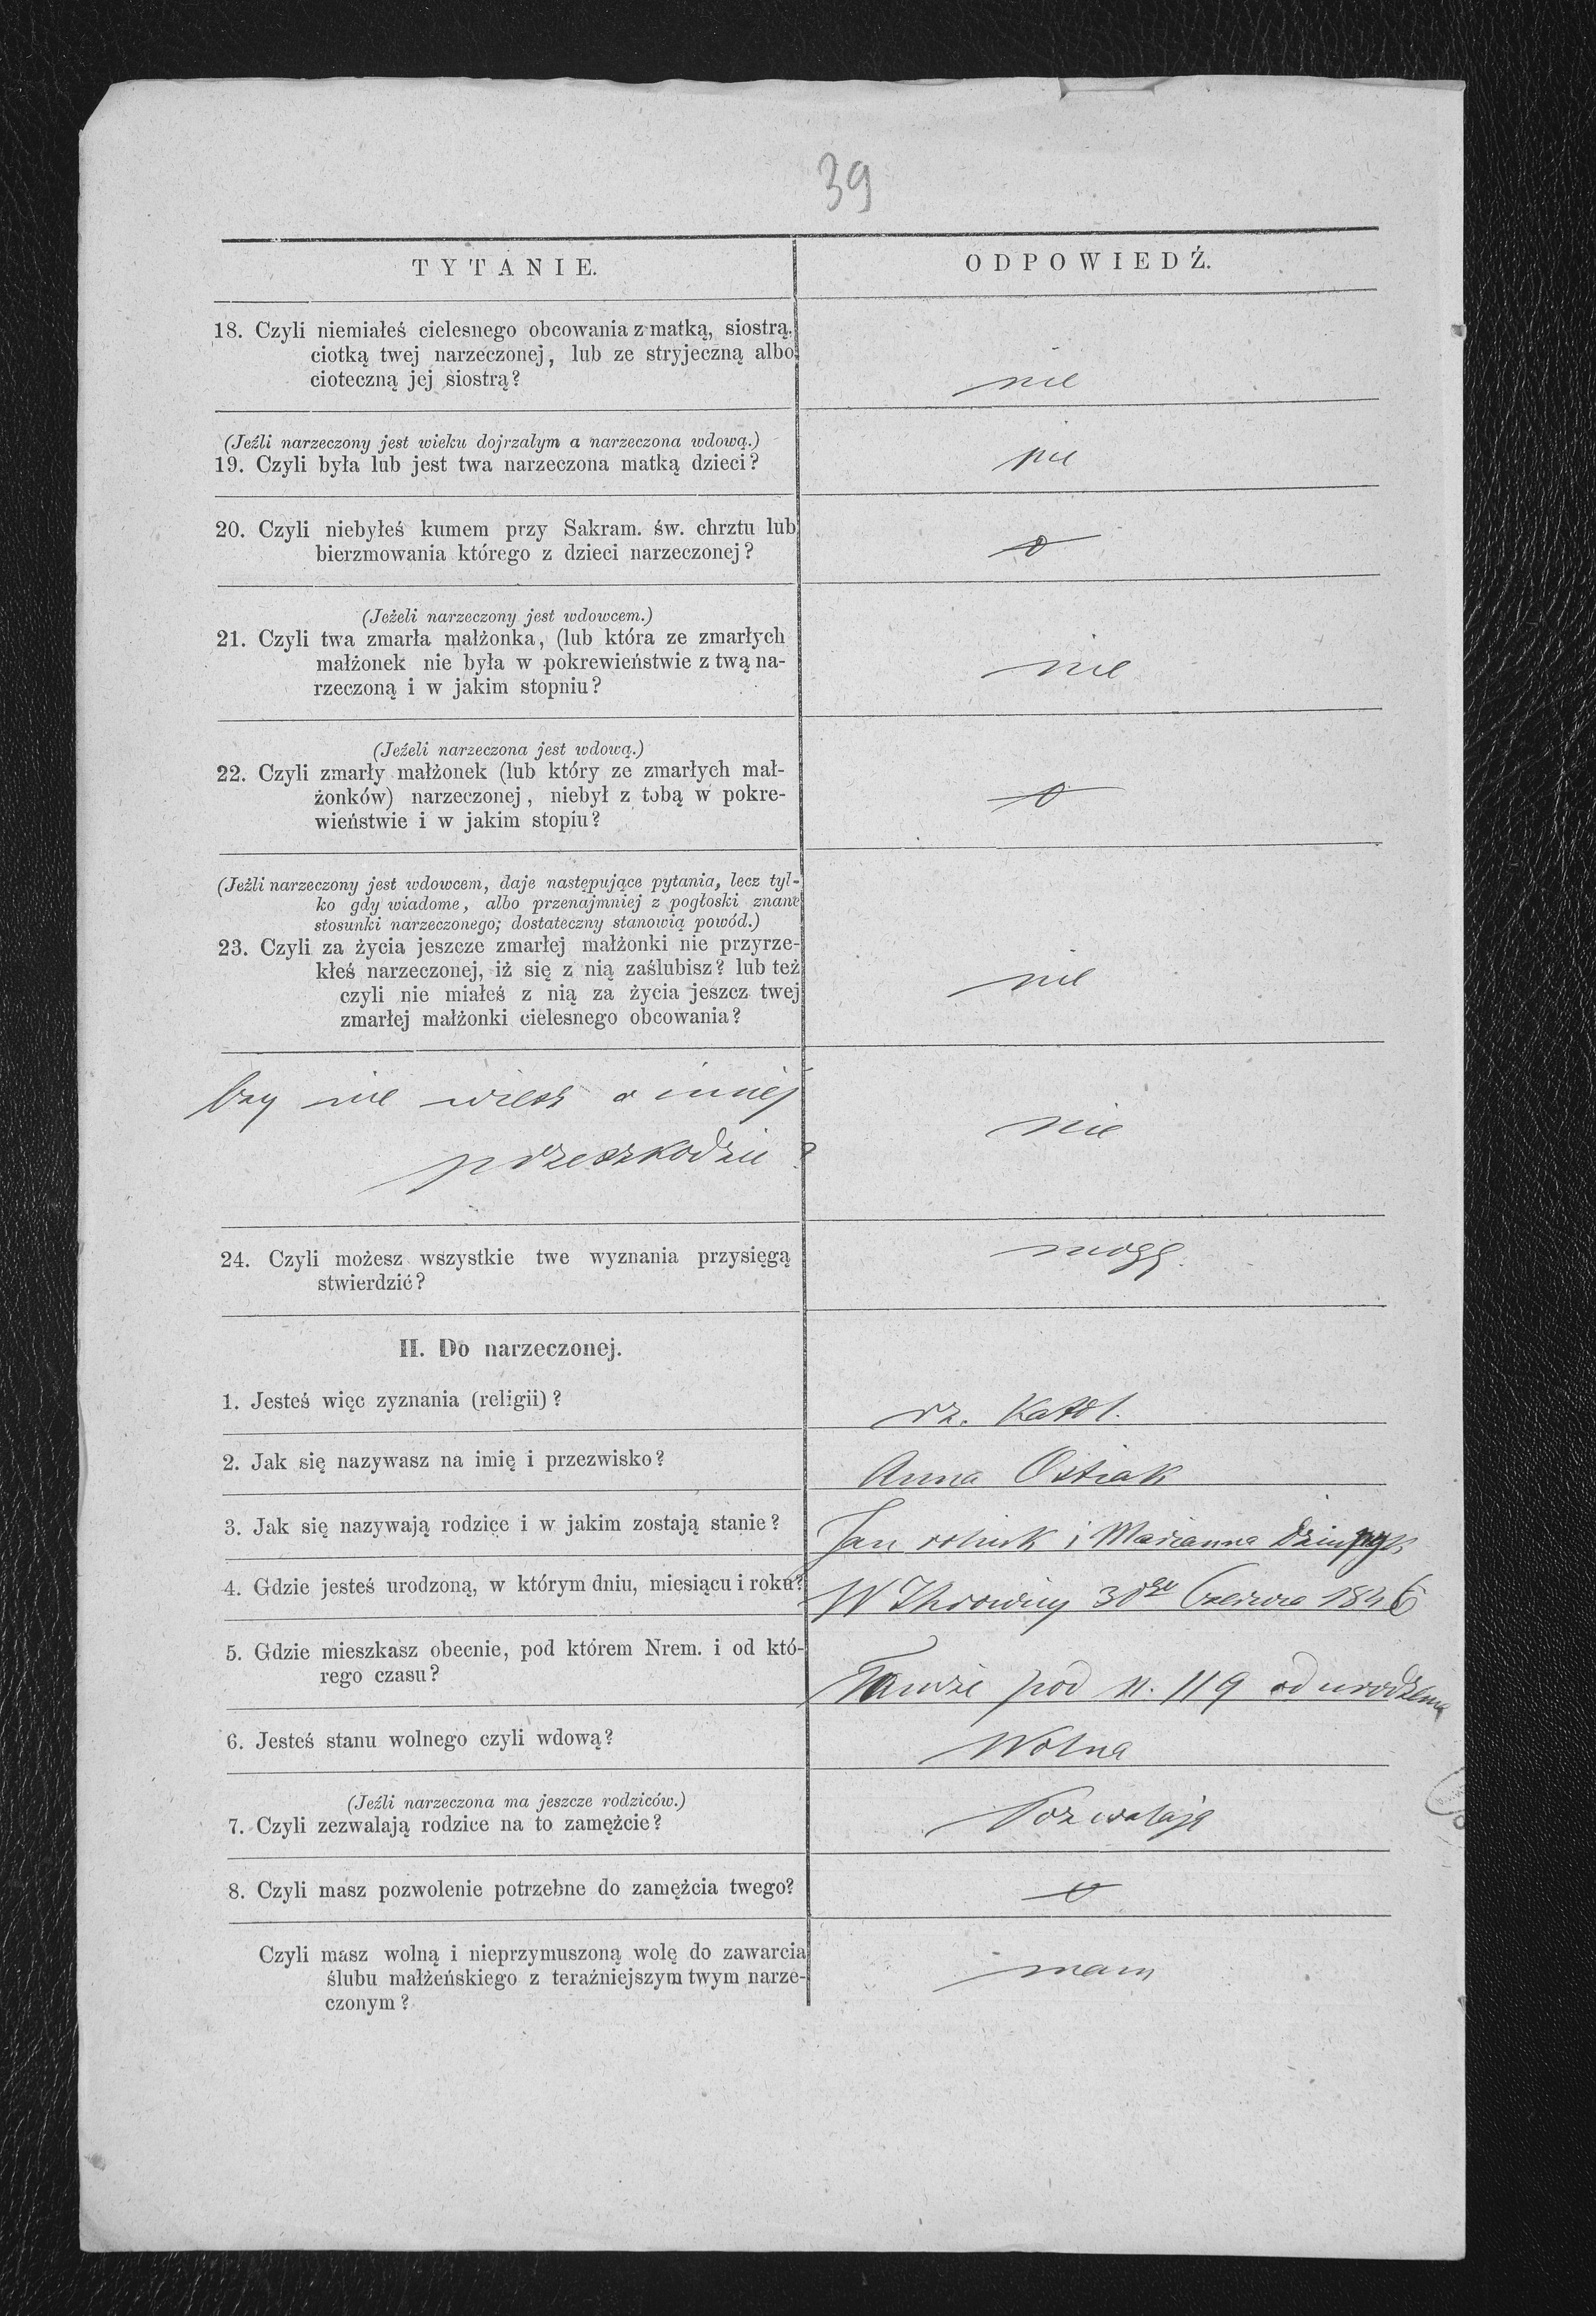 39
TYTANIE.
ODPOWIEDŹ.
18. Czyli niemiałeś cielesnego obcowania z matką, siostrą,
ciotką twej narzeczonej, lub ze stryjeczną albo
cioteczną jej siostrą?
nie
(Jeźli narzeczony jest wieku dojrzałym a narzeczona wdową.)
19. Czyli była lub jest twa narzeczona matką dzieci?
nie
20. Czyli niebyłeś kumem przy Sakram. św. chrztu lub
bierzmowania którego z dzieci narzeczonej?
0
(Jeżeli narzeczony jest wdowcem.)
21. Czyli twa zmarła małżonka, (lub która ze zmarłych
małżonek nie była w pokrewieństwie z twą na-
rzeczoną i w jakim stopniu?
nie
(Jeżeli narzeczona jest wdową.)
22. Czyli zmarły małżonek (lub który ze zmarłych mał-
żonków) narzeczonej, niebył z tobą w pokre-
wieństwie i w jakim stopiu?
0
(Jeźli narzeczony jest wdowcem, daje następujące pytania, lecz tyl-
ko gdy wiadome, albo przenajmniej z pogłoski znane
stosunki narzeczonego; dostateczny stanowią powód.)
23. Czyli za życia jeszcze zmarłej małżonki nie przyrze-
kłeś narzeczonej, iż się z nią zaślubisz? lub też
czyli nie miałeś z nią za życia jeszcz twej
zmarłej małżonki cielesnego obcowania?
nie
Czy nie wiesz o innej
przeszkodzie?
nie
24. Czyli możesz wszystkie twe wyznania przysięgą
stwierdzić?
mogę.
II. Do narzeczonej.
1. Jesteś więc zyznania (religii)?
rz. katol.
2. Jak się nazywasz na imię i przezwisko?
Anna Ostiak
3. Jak się nazywają rodzice i w jakim zostają stanie?
Jan rolnik i Marianna
4. Gdzie jesteś urodzoną, w którym dniu, miesiącu i roku?
W 30go Czerwca 1846
5. Gdzie mieszkasz obecnie, pod którem Nrem. i od któ-
rego czasu?
Tamże pod n. 119 od urodzenia
6. Jesteś stanu wolnego czyli wdową?
Wolna
(Jeźli narzeczona ma jeszcze rodziców.)
7. Czyli zezwalają rodzice na to zamężcie?
Pozwalają
8. Czyli masz pozwolenie potrzebne do zamężcia twego?
0
Czyli masz wolną i nieprzymuszoną wolę do zawarcia
ślubu małżeńskiego z teraźniejszym twym narze-
czonym?
mam